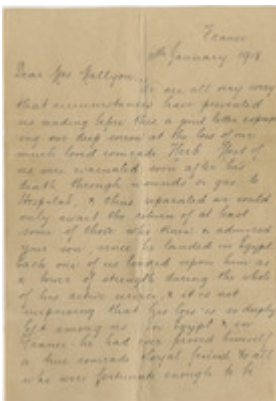 France
January 1918
Dear Mrs
We are all very sorry
that circumstances have prevented
us sending before this a joint letter express
ing our deep sorrow at the loss of our
much loved comrade Herb. Most of
us were evacuated soon after his
death through wounds or gas to
Hospital, & thus separated we could
only await the return of at least
some of those who knew & admired
your son, since he landed in Egypt
each one of us looked upon him as
a tower of strength during the whole
of his active service, & it is not
surprising that his loss is so deeply
felt among us in Egypt & in
France he had ever proved himself
a true comrade loyal friend to all
who were fortunate enough to be